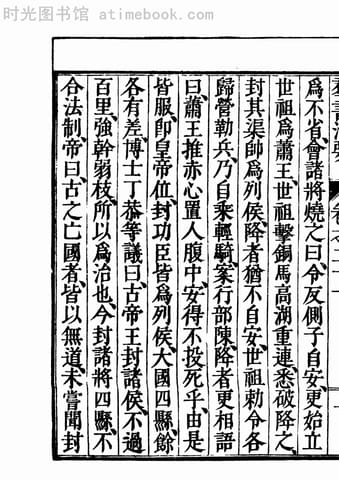 时光图书馆 - atimebook.com
羣書治要 卷之二十一
爲不省、會諸將燒之曰、令反側子自安、更始立
世祖爲蕭王、世祖擊銅馬高湖重連、悉破降之、
封其渠帥爲列侯、降者猶不自安、世祖勅令各
歸營勒兵、乃自乘輕騎、案行部陳、降者更相語
曰、蕭王推赤心置人腹中、安得不投死乎、由是
皆服、即皇帝位、封功臣皆爲列侯、大國四縣、餘
各有差、博士丁恭等議曰、古帝王封諸侯、不過
百里、強幹弱枝、所以爲治也、今封諸將四縣、不
合法制、帝曰、古之亡國者、皆以無道、未嘗聞封